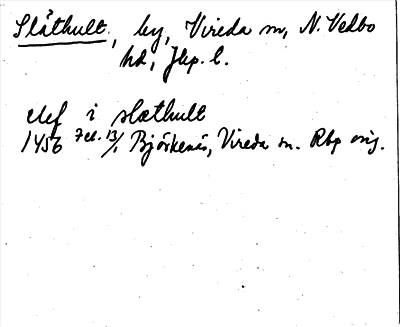 Slåthult, by, Vireda sn, N. Vedbo
hd, Jkp. l.
elef i slæthult
1456 Feb. 13/1 Björkenäs, Vireda sn. Rbp orig.